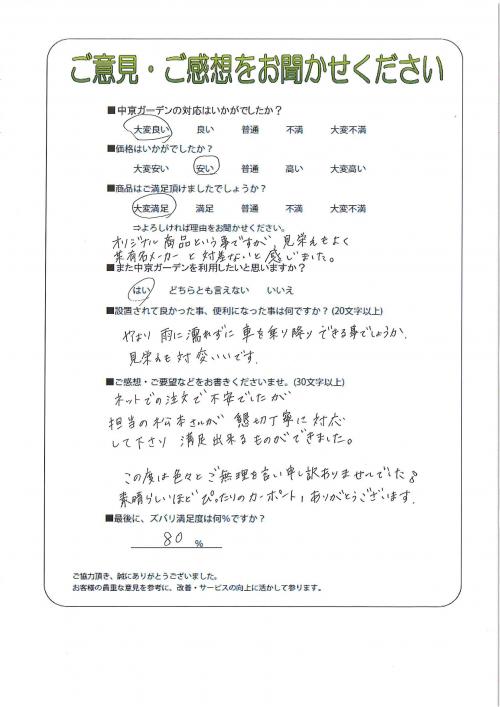 ご意見・ご感想をお聞かせください
■中京ガーデンの対応はいかがでしたか？
大変良い 良い 普通 不満 大変不満
■価格はいかがでしたか？
大変安い 安い 普通 高い 大変高い
■商品はご満足頂けましたでしょうか？
大変満足 満足 普通 不満 大変不満
⇒よろしければ理由をお聞かせください。
オリジナル商品という事ですが、見栄えもよく
某有名メーカーと対差ないと感じました。
■また中京ガーデンを利用したいと思いますか？
はい どちらとも言えない いいえ
■設置されて良かった事、便利になった事は何ですか？(20文字以上)
やはり雨に濡れずに車を乗り降りできる事でしょうか。
見栄えも対変いいです。
■ご感想・ご要望などをお書きくださいませ。(30文字以上)
ネットでの注文で不安でしたが
担当の松本さんが懇切丁寧に対応
して下さり満足出来るものができました。
この度は色々とご無理を言い申し訳ありませんでした。
素晴らしいほどぴったりのカーポート、ありがとうございます。
■最後に、ズバリ満足度は何％ですか？
80 %
ご協力頂き、誠にありがとうございました。
お客様の貴重な意見を参考に、改善・サービスの向上に活かして参ります。